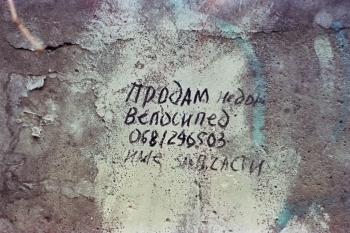 Продам недор
Велосипед
0681296503
запчасти